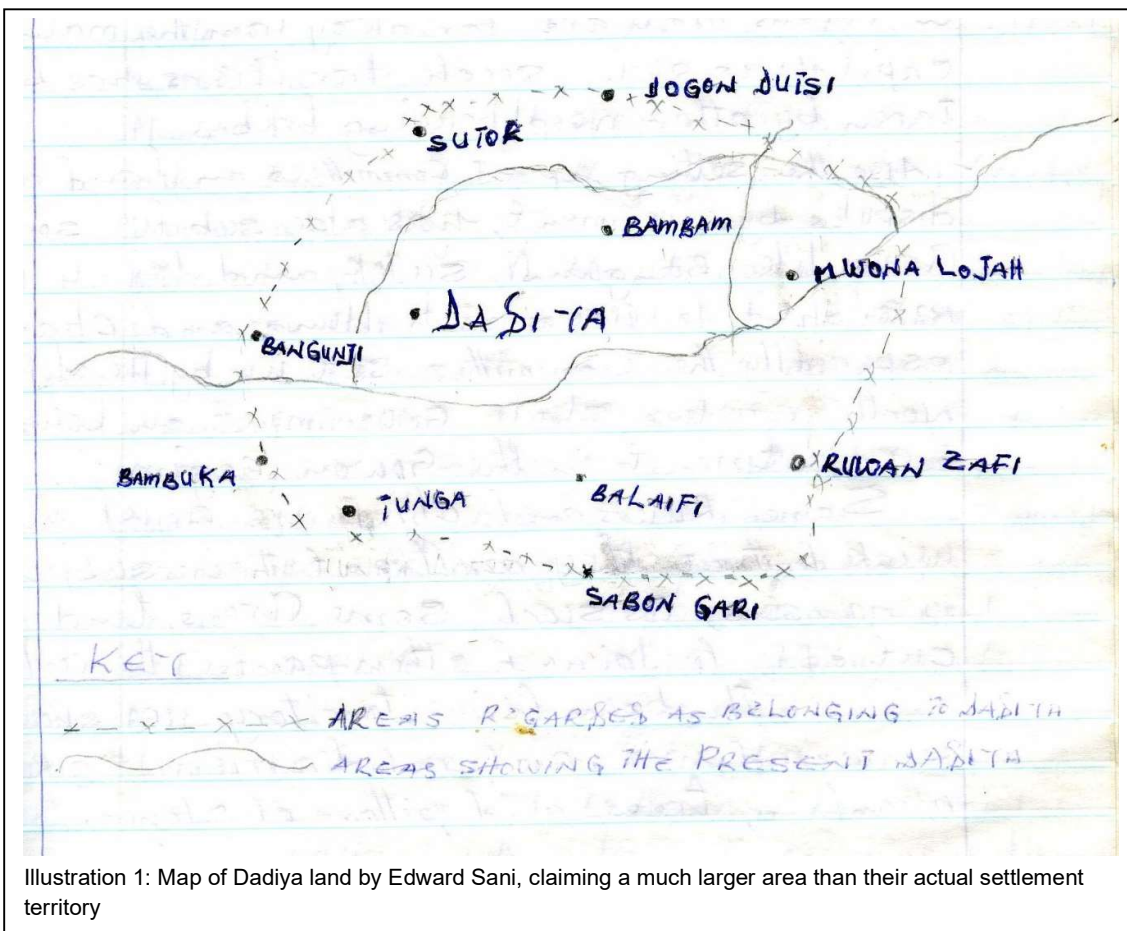 DOGON DUTSI
SUTOR
BAMBAM
MWONA LOJAH
DADIYA
BANGUNJI
BAMBUKA
RUWAN ZAFI
TUNGA
BALAIFI
SABON GARI
KEY
AREAS REGARDED AS BELONGING TO DADIYA
AREAS SHOWING THE PRESENT DADIYA
Illustration 1: Map of Dadiya land by Edward Sani, claiming a much larger area than their actual settlement
territory